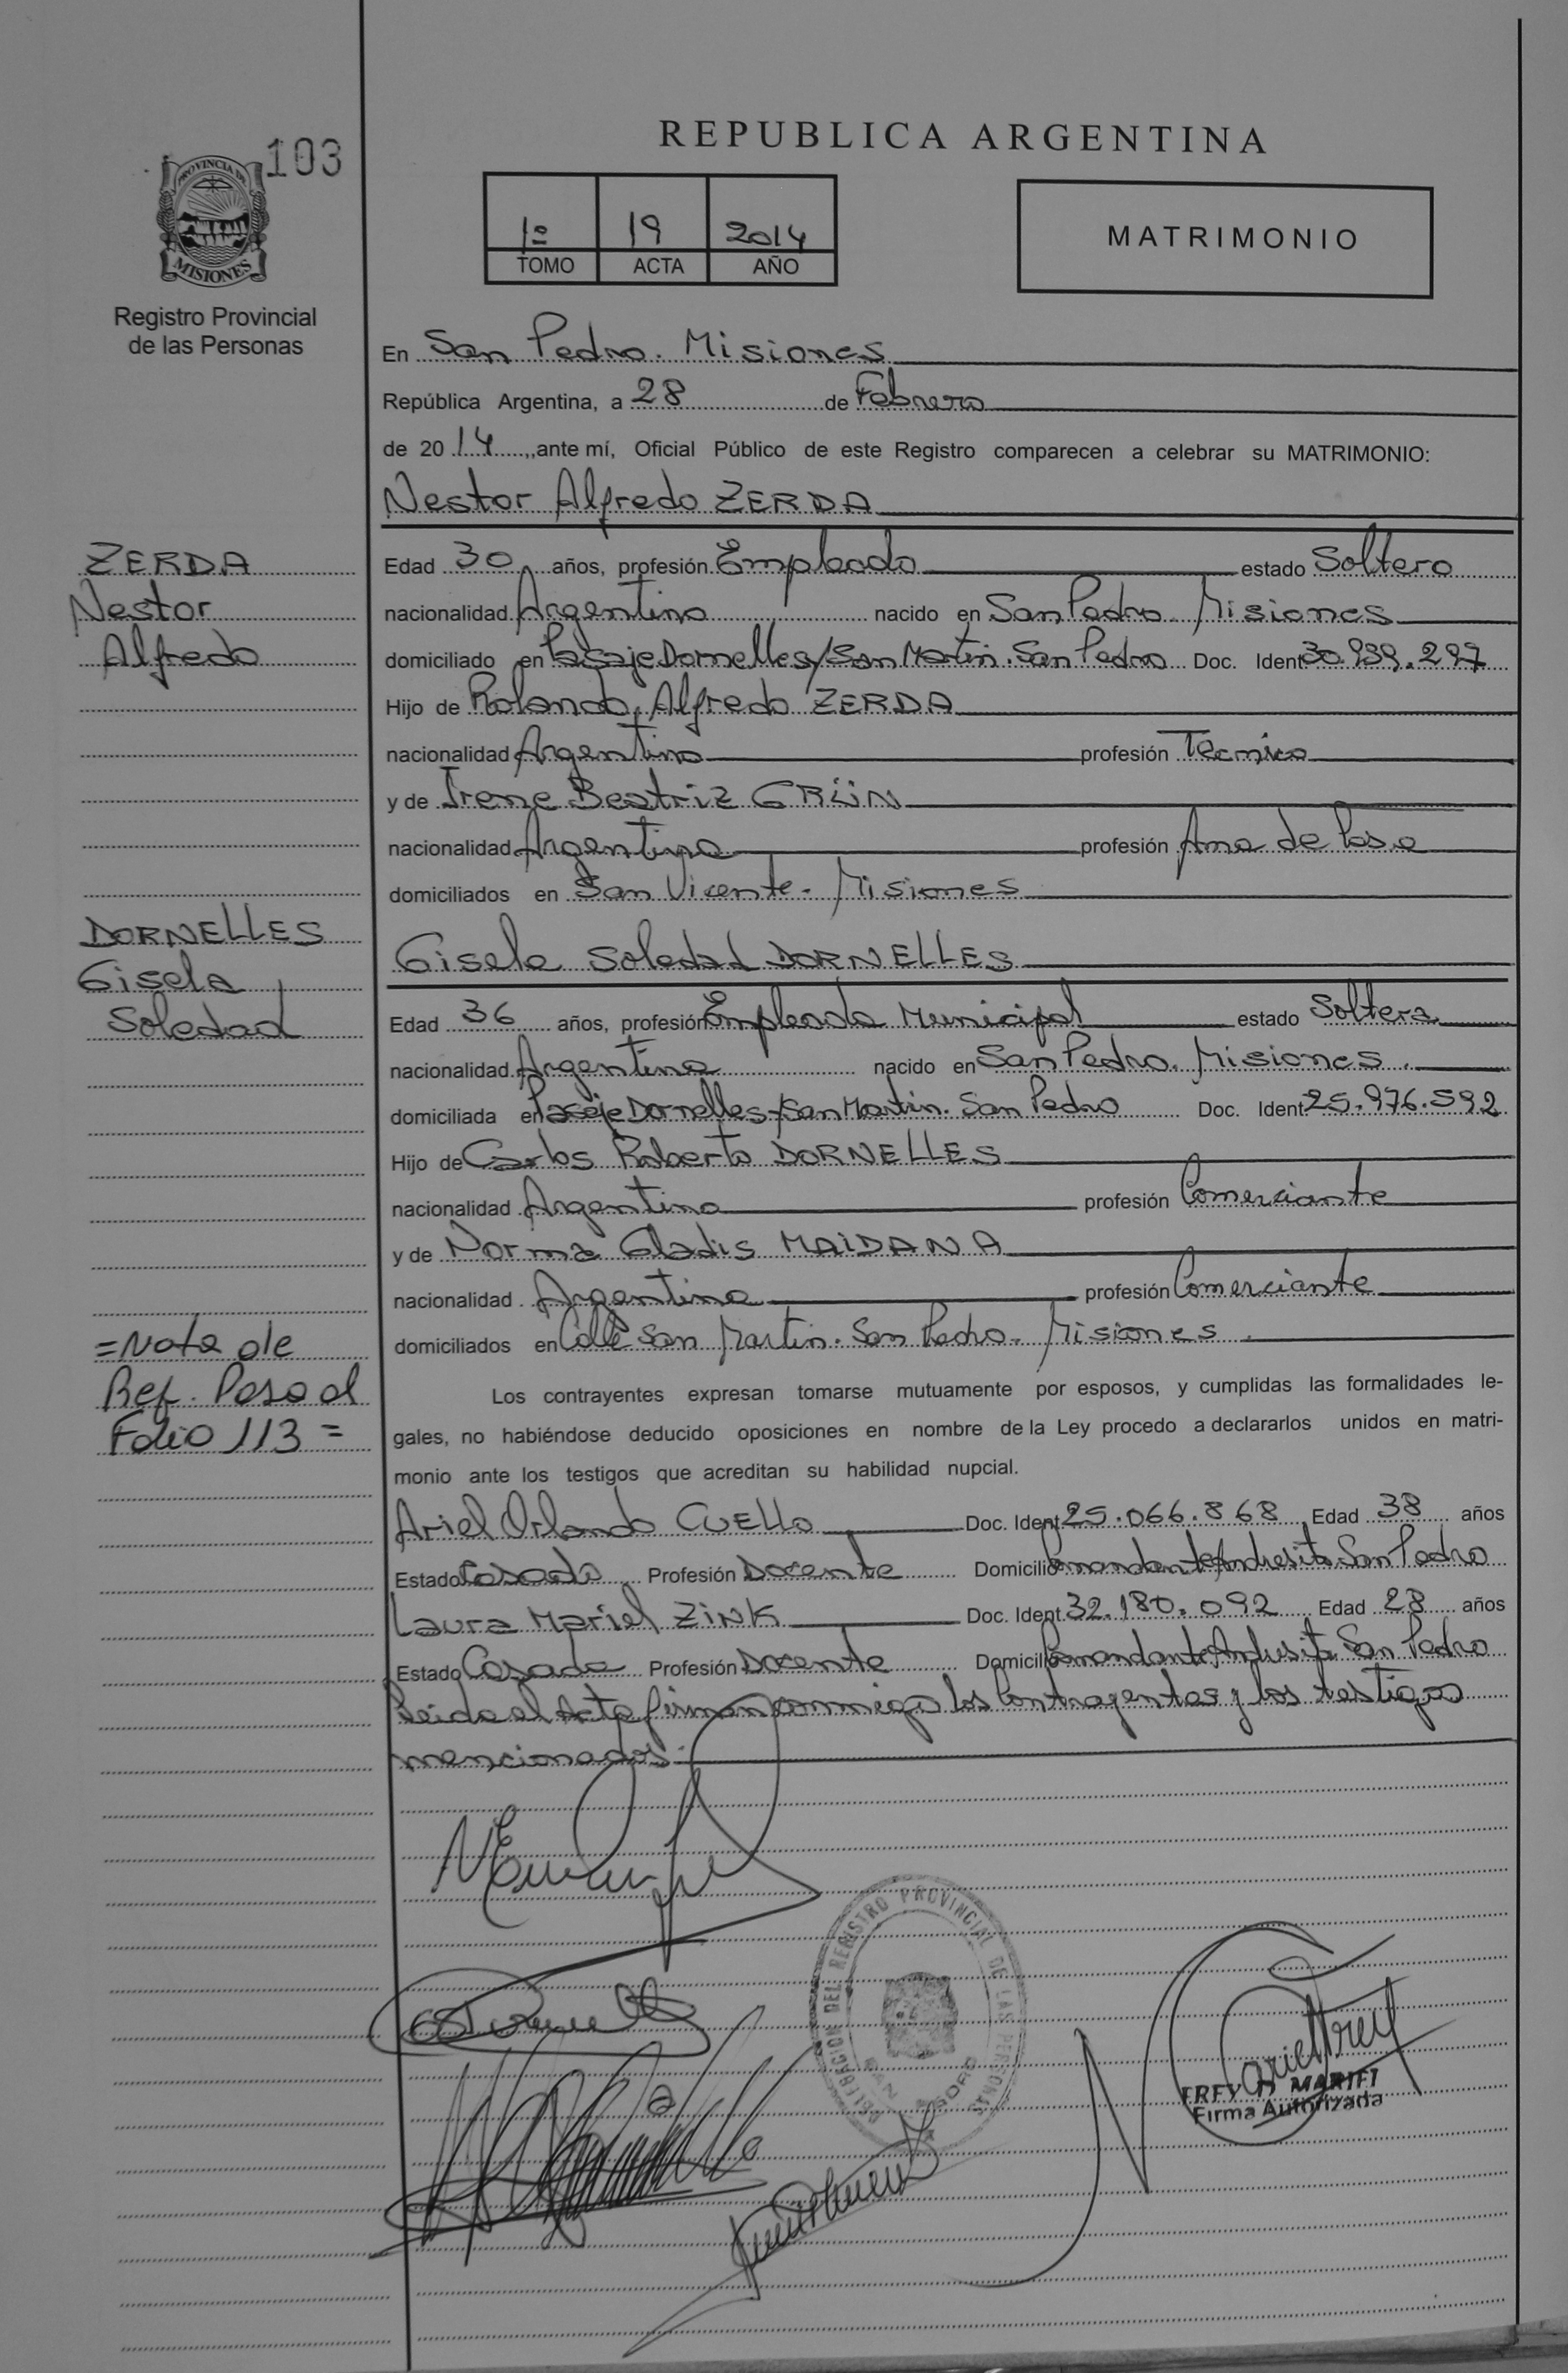 103
PROVINCIA DE
MISIONES
Registro Provincial
de las Personas
REPUBLICA ARGENTINA
1º 19 2014
TOMO ACTA AÑO
MATRIMONIO
En San Pedro. Misiones
República Argentina, a 28 de Febrero
de 20 14, ante mí, Oficial Público de este Registro comparecen a celebrar su MATRIMONIO:
Nestor Alfredo ZERDA
ZERDA
Nestor
Alfredo
Edad 30 años, profesión Empleado estado Soltero
nacionalidad Argentino nacido en San Pedro. Misiones
domiciliado en Pasaje Dornelles/San Martin. San Pedro Doc. Ident. 30.939.297
Hijo de Rolando Alfredo ZERDA
nacionalidad Argentino profesión Tecnico
y de Irene Beatriz GRÜN
nacionalidad Argentina profesión Ama de Casa
domiciliados en San Vicente - Misiones
DORNELLES
Gisela
Soledad
Gisela Soledad DORNELLES
Edad 36 años, profesión Empleada Municipal estado Soltera
nacionalidad Argentina nacido en San Pedro. Misiones.
domiciliada en Pasaje Dornelles/San Martin. San Pedro Doc. Ident. 25.976.592
Hijo de Carlos Roberto DORNELLES
nacionalidad Argentino profesión Comerciante
y de Norma Gladis MAIDANA
nacionalidad Argentina profesión Comerciante
domiciliados en Calle San Martin. San Pedro. Misiones.
=Nota de
Ref. Pasa al
Folio 113=
Los contrayentes expresan tomarse mutuamente por esposos, y cumplidas las formalidades le-
gales, no habiéndose deducido oposiciones en nombre de la Ley procedo a declararlos unidos en matri-
monio ante los testigos que acreditan su habilidad nupcial.
Ariel Orlando CUELLO Doc. Ident. 25.066.868 Edad 38 años
Estado Casado Profesión Docente Domicilio Comandante Andresito San Pedro
Laura Mariel ZINK Doc. Ident. 32.180.092 Edad 28 años
Estado Casada Profesión Docente Domicilio Comandante Andresito San Pedro
Leida el Acta firman conmigo los Contrayentes y los testigos
mencionados.
DELEGACION DEL REGISTRO PROVINCIAL DE LAS PERSONAS
SAN PEDRO
FREY H MARIEL
Firma Autorizada